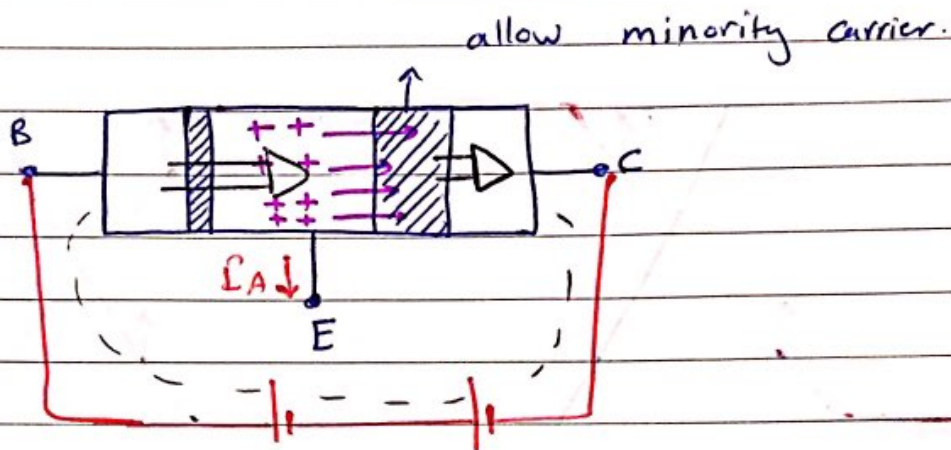 allow minority carrier.
B
+ +
+ +
C
+ +
+ +
I_A
E